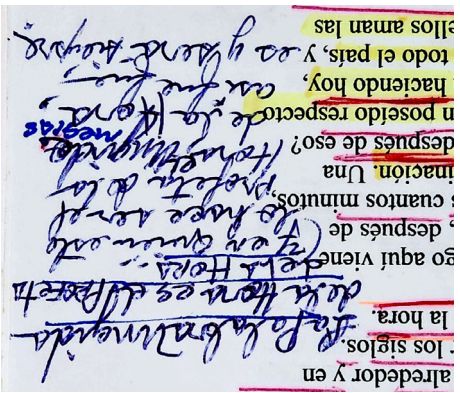 alrededor y en
los siglos.
la hora.
aquí viene
, después de
cuantos minutos,
Una
después de eso?
poseído respecto
haciendo hoy,
todo el país, y
ellos aman las
La Palabra Ungida
de la Hora es el Profeta
de la Hora.
(y en quien este
lo hace ser el
profeta de la
Hora) Ungido
mesías
de la Hora,
así fue,
es y será siempre.